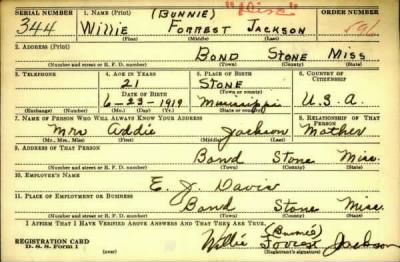 SERIAL NUMBER 1. NAME (Print) (BUNNIE) ORDER NUMBER
344 Willie Forrest Jackson
(First) (Middle) (Last)
2. ADDRESS (Print)
Bond Stone Miss
(Number and street or R. F. D. number) (Town) (County) (State)
3. TELEPHONE 4. AGE IN YEARS 5. PLACE OF BIRTH 6. COUNTRY OF CITIZENSHIP
21 Stone
DATE OF BIRTH (Town or county)
6-23-1919 Mississippi U.S.A.
(Exchange) (Number) (Mo.) (Day) (Yr.) (State or country)
7. NAME OF PERSON WHO WILL ALWAYS KNOW YOUR ADDRESS 8. RELATIONSHIP OF THAT PERSON
Mrs Addie Jackson Mother
(Mr., Mrs., Miss) (First) (Middle) (Last)
9. ADDRESS OF THAT PERSON
Bond Stone Miss.
(Number and street or R. F. D. number) (Town) (County) (State)
10. EMPLOYER'S NAME
E. J. Davis
11. PLACE OF EMPLOYMENT OR BUSINESS
Bond Stone Miss.
(Number and street or R. F. D. number) (Town) (County) (State)
I AFFIRM THAT I HAVE VERIFIED ABOVE ANSWERS AND THAT THEY ARE TRUE.
REGISTRATION CARD (Bunnie)
D. S. S. Form 1 Willie Forrest Jackson
(over) (Registrant's signature)